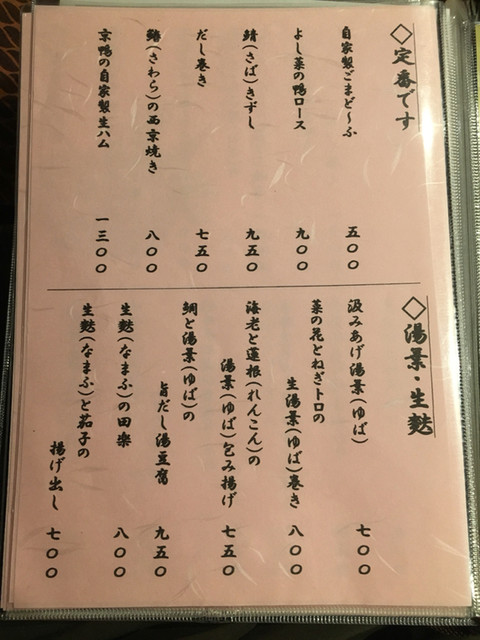 ◇定番です
自家製ごまど～ふ 五〇〇
よし菜の鴨ロース 九〇〇
鯖(さば)きずし 九五〇
だし巻き 七五〇
鰆(さわら)の西京焼き 八〇〇
京鴨の自家製生ハム 一三〇〇
◇湯葉・生麩
汲みあげ湯葉(ゆば) 七〇〇
菜の花とねぎトロの
生湯葉(ゆば)巻き 八〇〇
海老と蓮根(れんこん)の
湯葉(ゆば)包み揚げ 七五〇
鯛と湯葉(ゆば)の
旨だし湯豆腐 九五〇
生麩(なまふ)の田楽 八〇〇
生麩(なまふ)と茄子の
揚げ出し 七〇〇